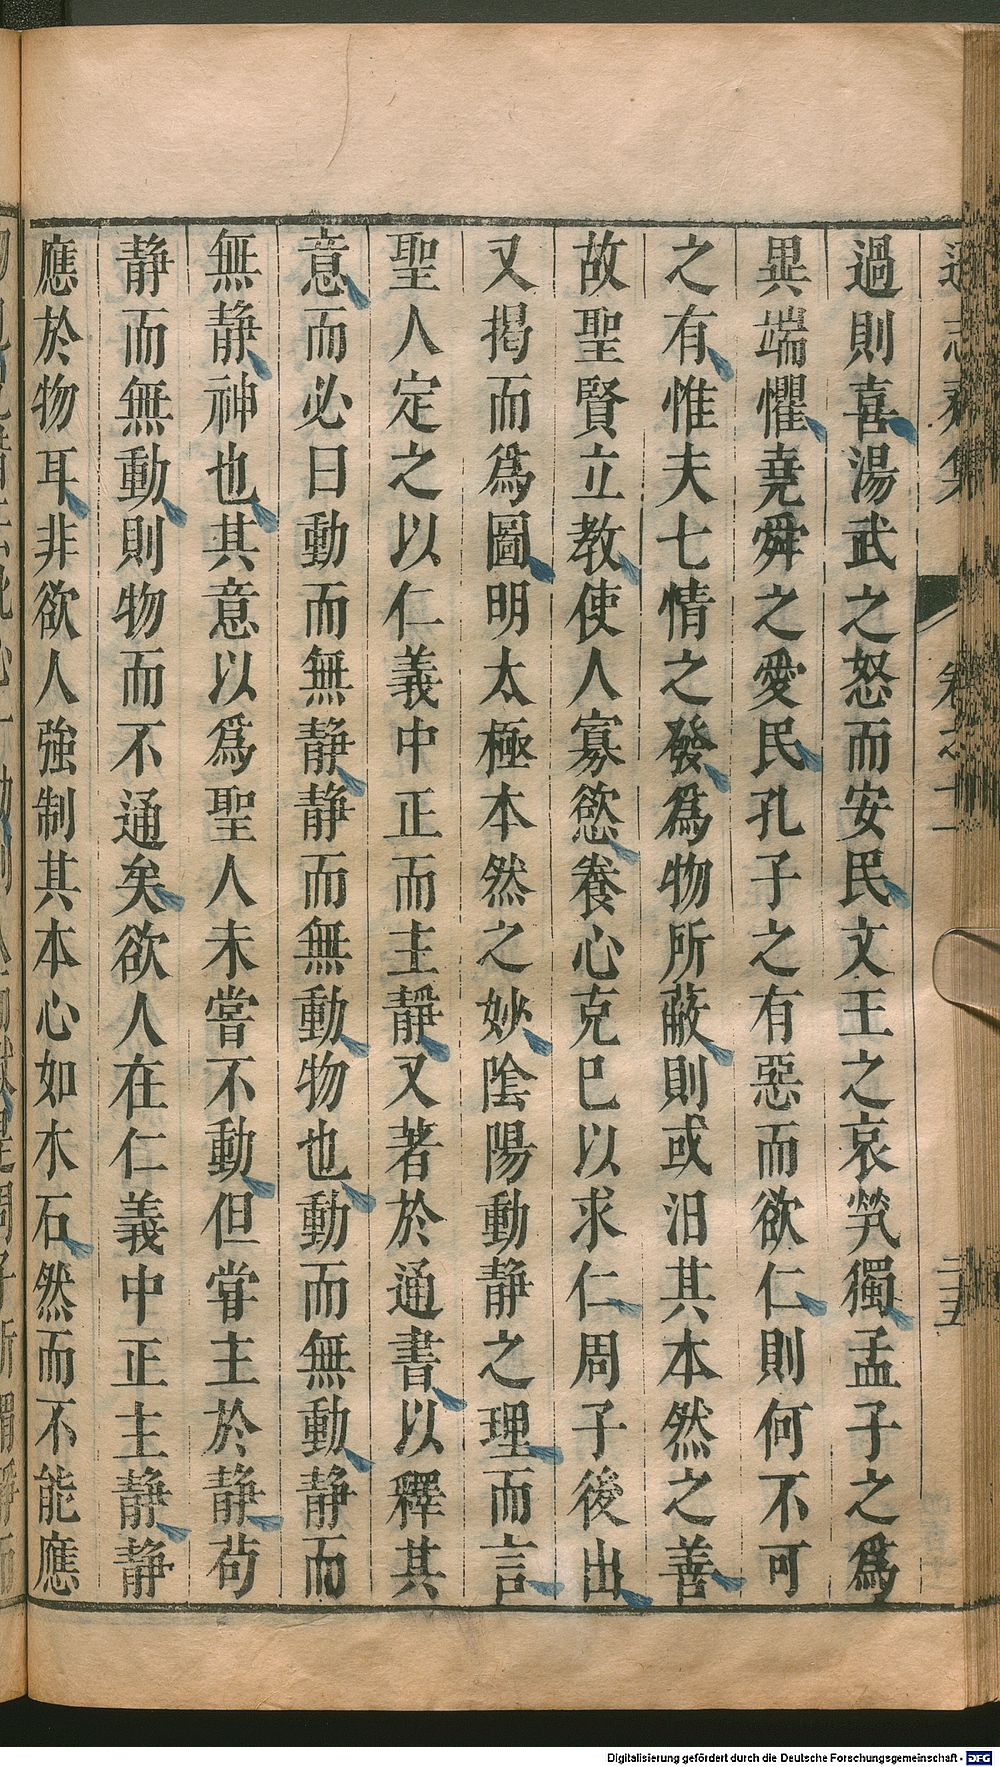 過則喜湯武之怒而安民文王之哀煢獨孟子之爲
異端懼堯舜之愛民孔子之有惡而欲仁則何不可
之有惟夫七情之發爲物所蔽則或汨其本然之善
故聖賢立教使人寡慾養心克己以求仁周子後出
又揭而爲圖明太極本然之妙陰陽動静之理而言
聖人定之以仁義中正而主靜又著於通書以釋其
意而必曰動而無静静而無動物也動而無動静而
無静神也其意以爲聖人未嘗不動但甞主於静茍
静而無動則物而不通矣欲人在仁義中正主静静
應於物耳非欲人強制其本心如木石然而不能應
Digitalisierung gefördert durch die Deutsche Forschungsgemeinschaft - DFG